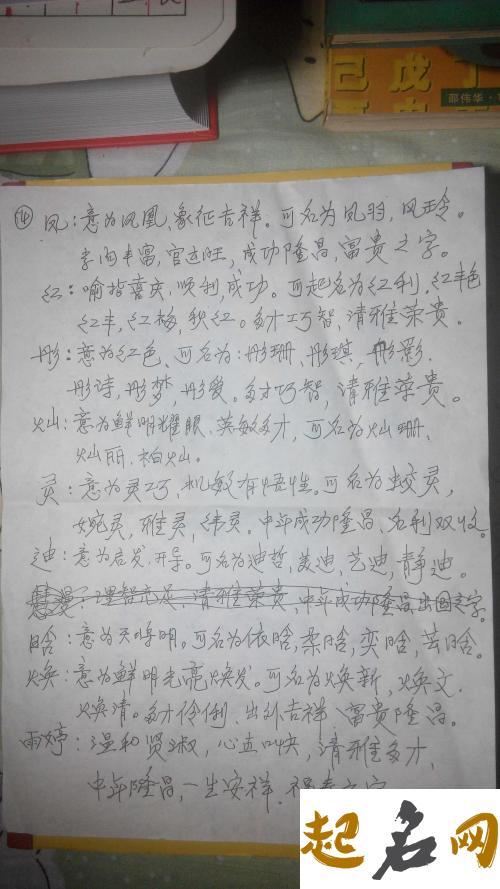 己戊丁
邵伟华
⑭ 凤：意为凤凰，象征吉祥。可名为凤羽，凤玲。
学问丰富，官运旺，成功隆昌，富贵之字。
红：喻指喜庆，顺利，成功。可起名为红利，红丰色
红丰，红梅，秋红。多才巧智，清雅荣贵。
彤：意为红色、可名为：彤珊、彤琪，彤影.
彤诗，彤梦，彤爱。多才巧智，清雅荣贵。
灿：意为鲜明耀眼、英敏多才，可名为灿珊、
灿丽、柏灿。
灵：意为灵巧、机敏有悟性。可名为姣灵，
婉灵，雅灵，纬灵。中年成功隆昌、名利双收。
迪：意为启发、开导。可名为迪哲，美迪，艺迪，静迪。
理智充足，清雅荣贵，中年成功隆昌出国之字。
晗：意为天将明。可名为依晗，柔晗，奕晗，芸晗。
焕：意为鲜明光亮焕发。可名为焕新，焕文.
焕清。多才伶俐，出外吉祥，富贵隆昌。
雨婷：温和贤淑，心直口快，清雅多才，
中年隆昌，一生安祥.福寿之字
起名网